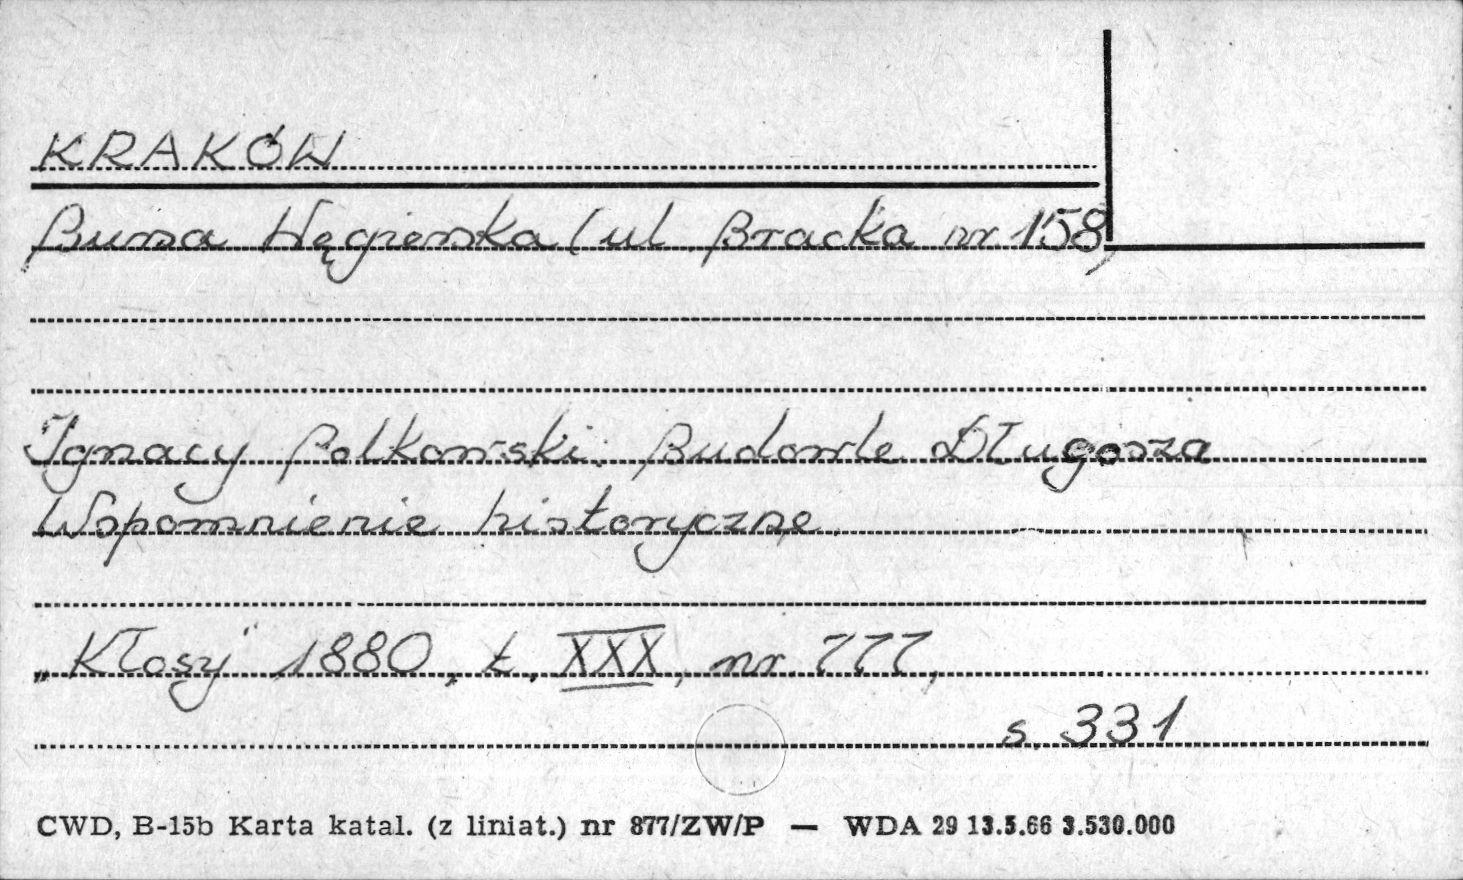 KRAKÓW
Bursa Węgierska (ul. Bracka nr 158)
Ignacy Polkowski: Budowle Długosza
Wspomnienie historyczne
„Kłosy" 1880, t. XXX, nr 777,
s. 331
CWD, B-15b Karta katal. (z liniat.) nr 877/ZW/P — WDA 29 13.5.66 3.530.000